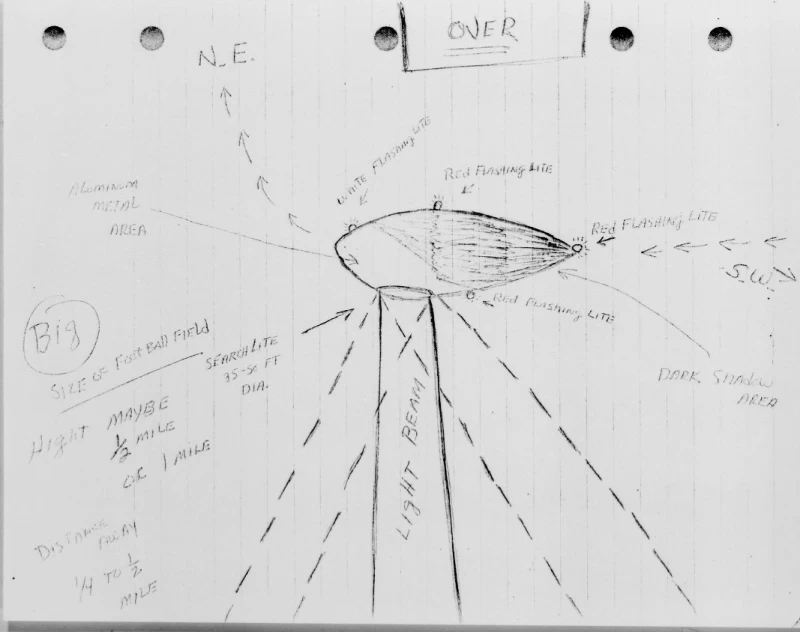 OVER
N.E.
WHITE FLASHING LITE
Red FLASHING LITE
ALUMINUM
METAL
AREA
Red FLASHING LITE
S.W.
Red FLASHING LITE
Big
SIZE OF FOOTBALL FIELD
SEARCH LITE
35-50 FT
DIA.
DARK SHADOW
AREA
HIGHT MAYBE
1/2 MILE
OR 1 MILE
LIGHT BEAM
DISTANCE
AWAY
1/4 TO 1/2
MILE